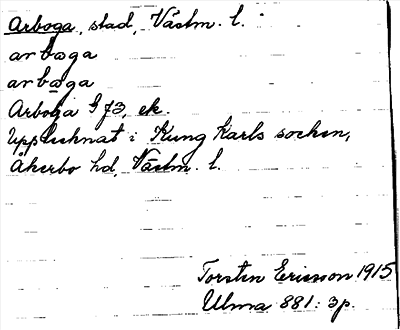 Arboga, stad, Västm. l.
arbωga
arbωga
Arboga S 73, ek.
Upptecknat i Kung Karls socken,
Åkerbo hd, Västm. l.
Torsten Ericsson 1915
Ulma 881: 3 p.